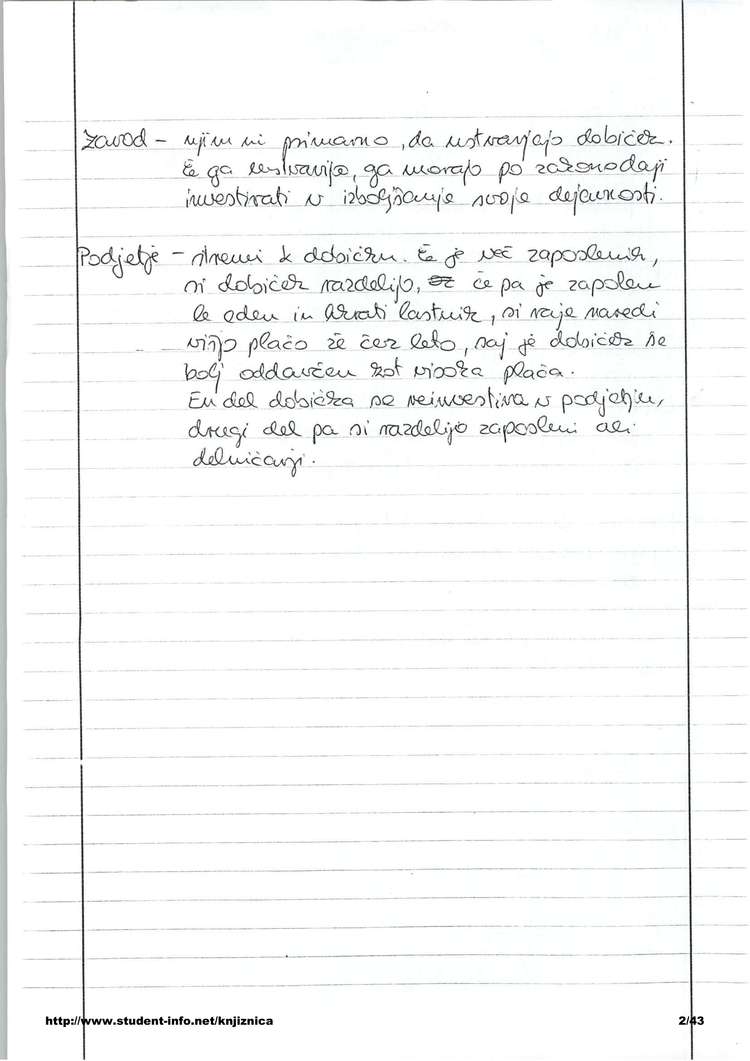 Zavod – njim ni primarno, da ustvarjajo dobiček.
Če ga ustvarijo, ga morajo po zakonodaji
investirati v izboljšanje svoje dejavnosti.
Podjetje – stremi k dobičku. Če je več zaposlenih,
si dobiček razdelijo, če pa je zapolen
le eden in hkrati lastnik, si raje naredi
višjo plačo že čez leto, saj je dobiček še
bolj oddavčen kot visoka plača.
En del dobička se reinvestira v podjetju,
drugi del pa si razdelijo zaposleni ali
delničarji.
http://www.student-info.net/knjiznica 2/43